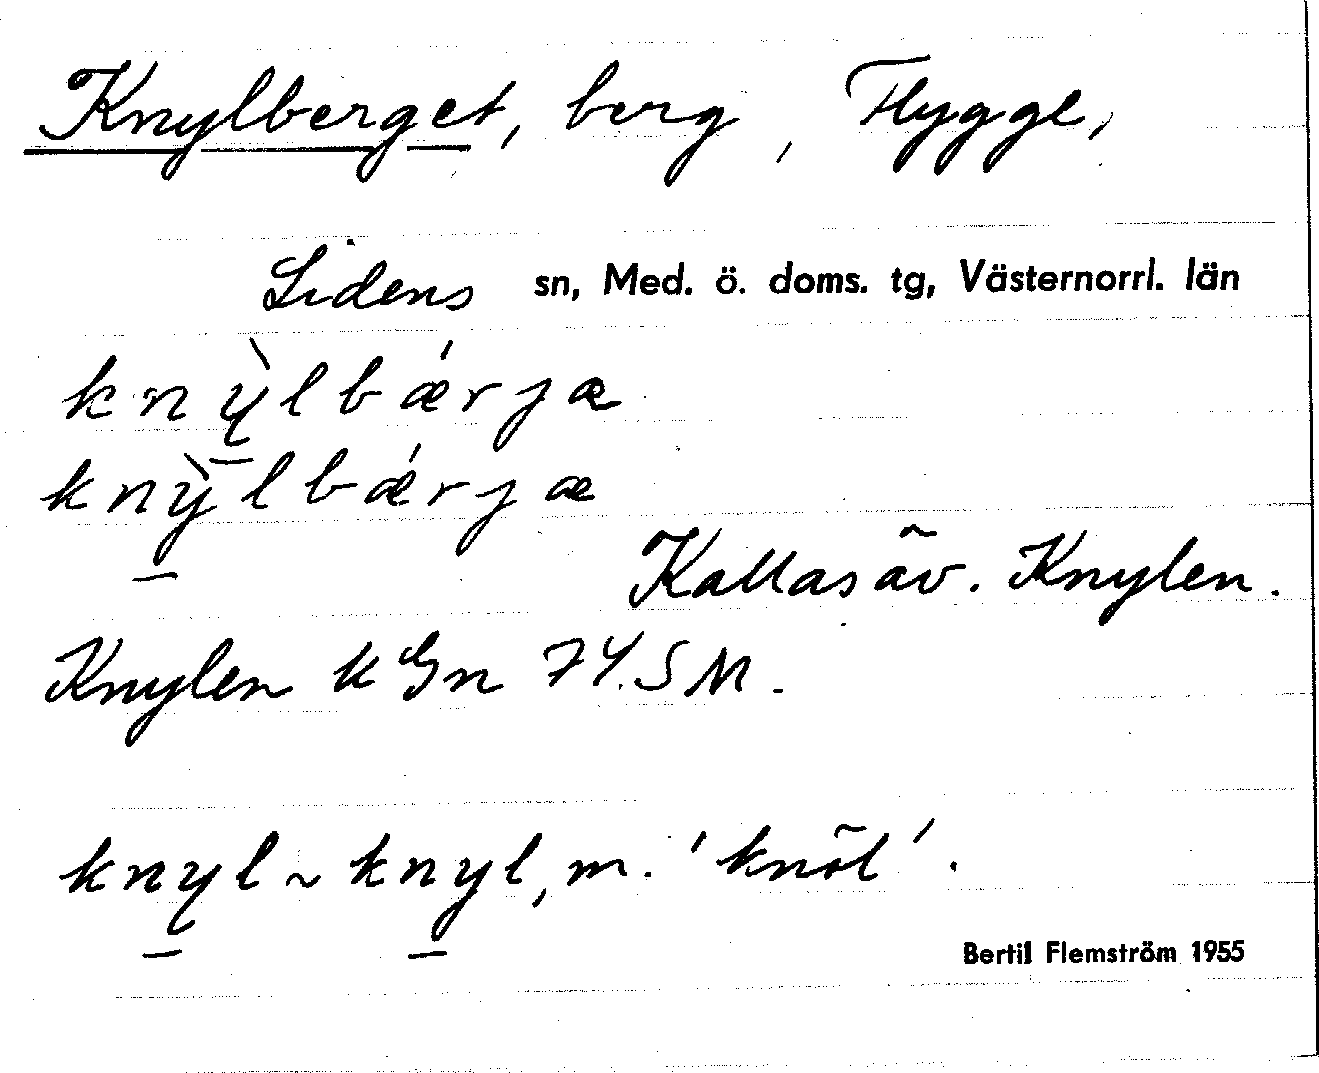 Knylberget, berg, Flygge,
Lidens sn, Med. ö. doms. tg, Västernorrl. län
knỳlbǽrjæ
knỳlbǽrjæ
Kallas äv. Knylen.
Knylen k Gn 74. SM.
knyl ~ knyl, m. 'knöl'.
Bertil Flemström 1955